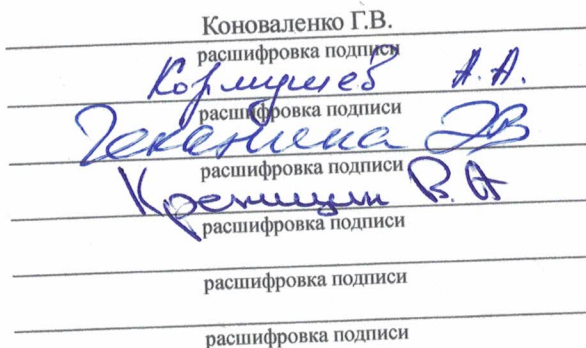 Коноваленко Г.В.
расшифровка подписи
Кормушев А.А.
расшифровка подписи
ЭВ
расшифровка подписи
Креницин В.А
расшифровка подписи
расшифровка подписи
расшифровка подписи